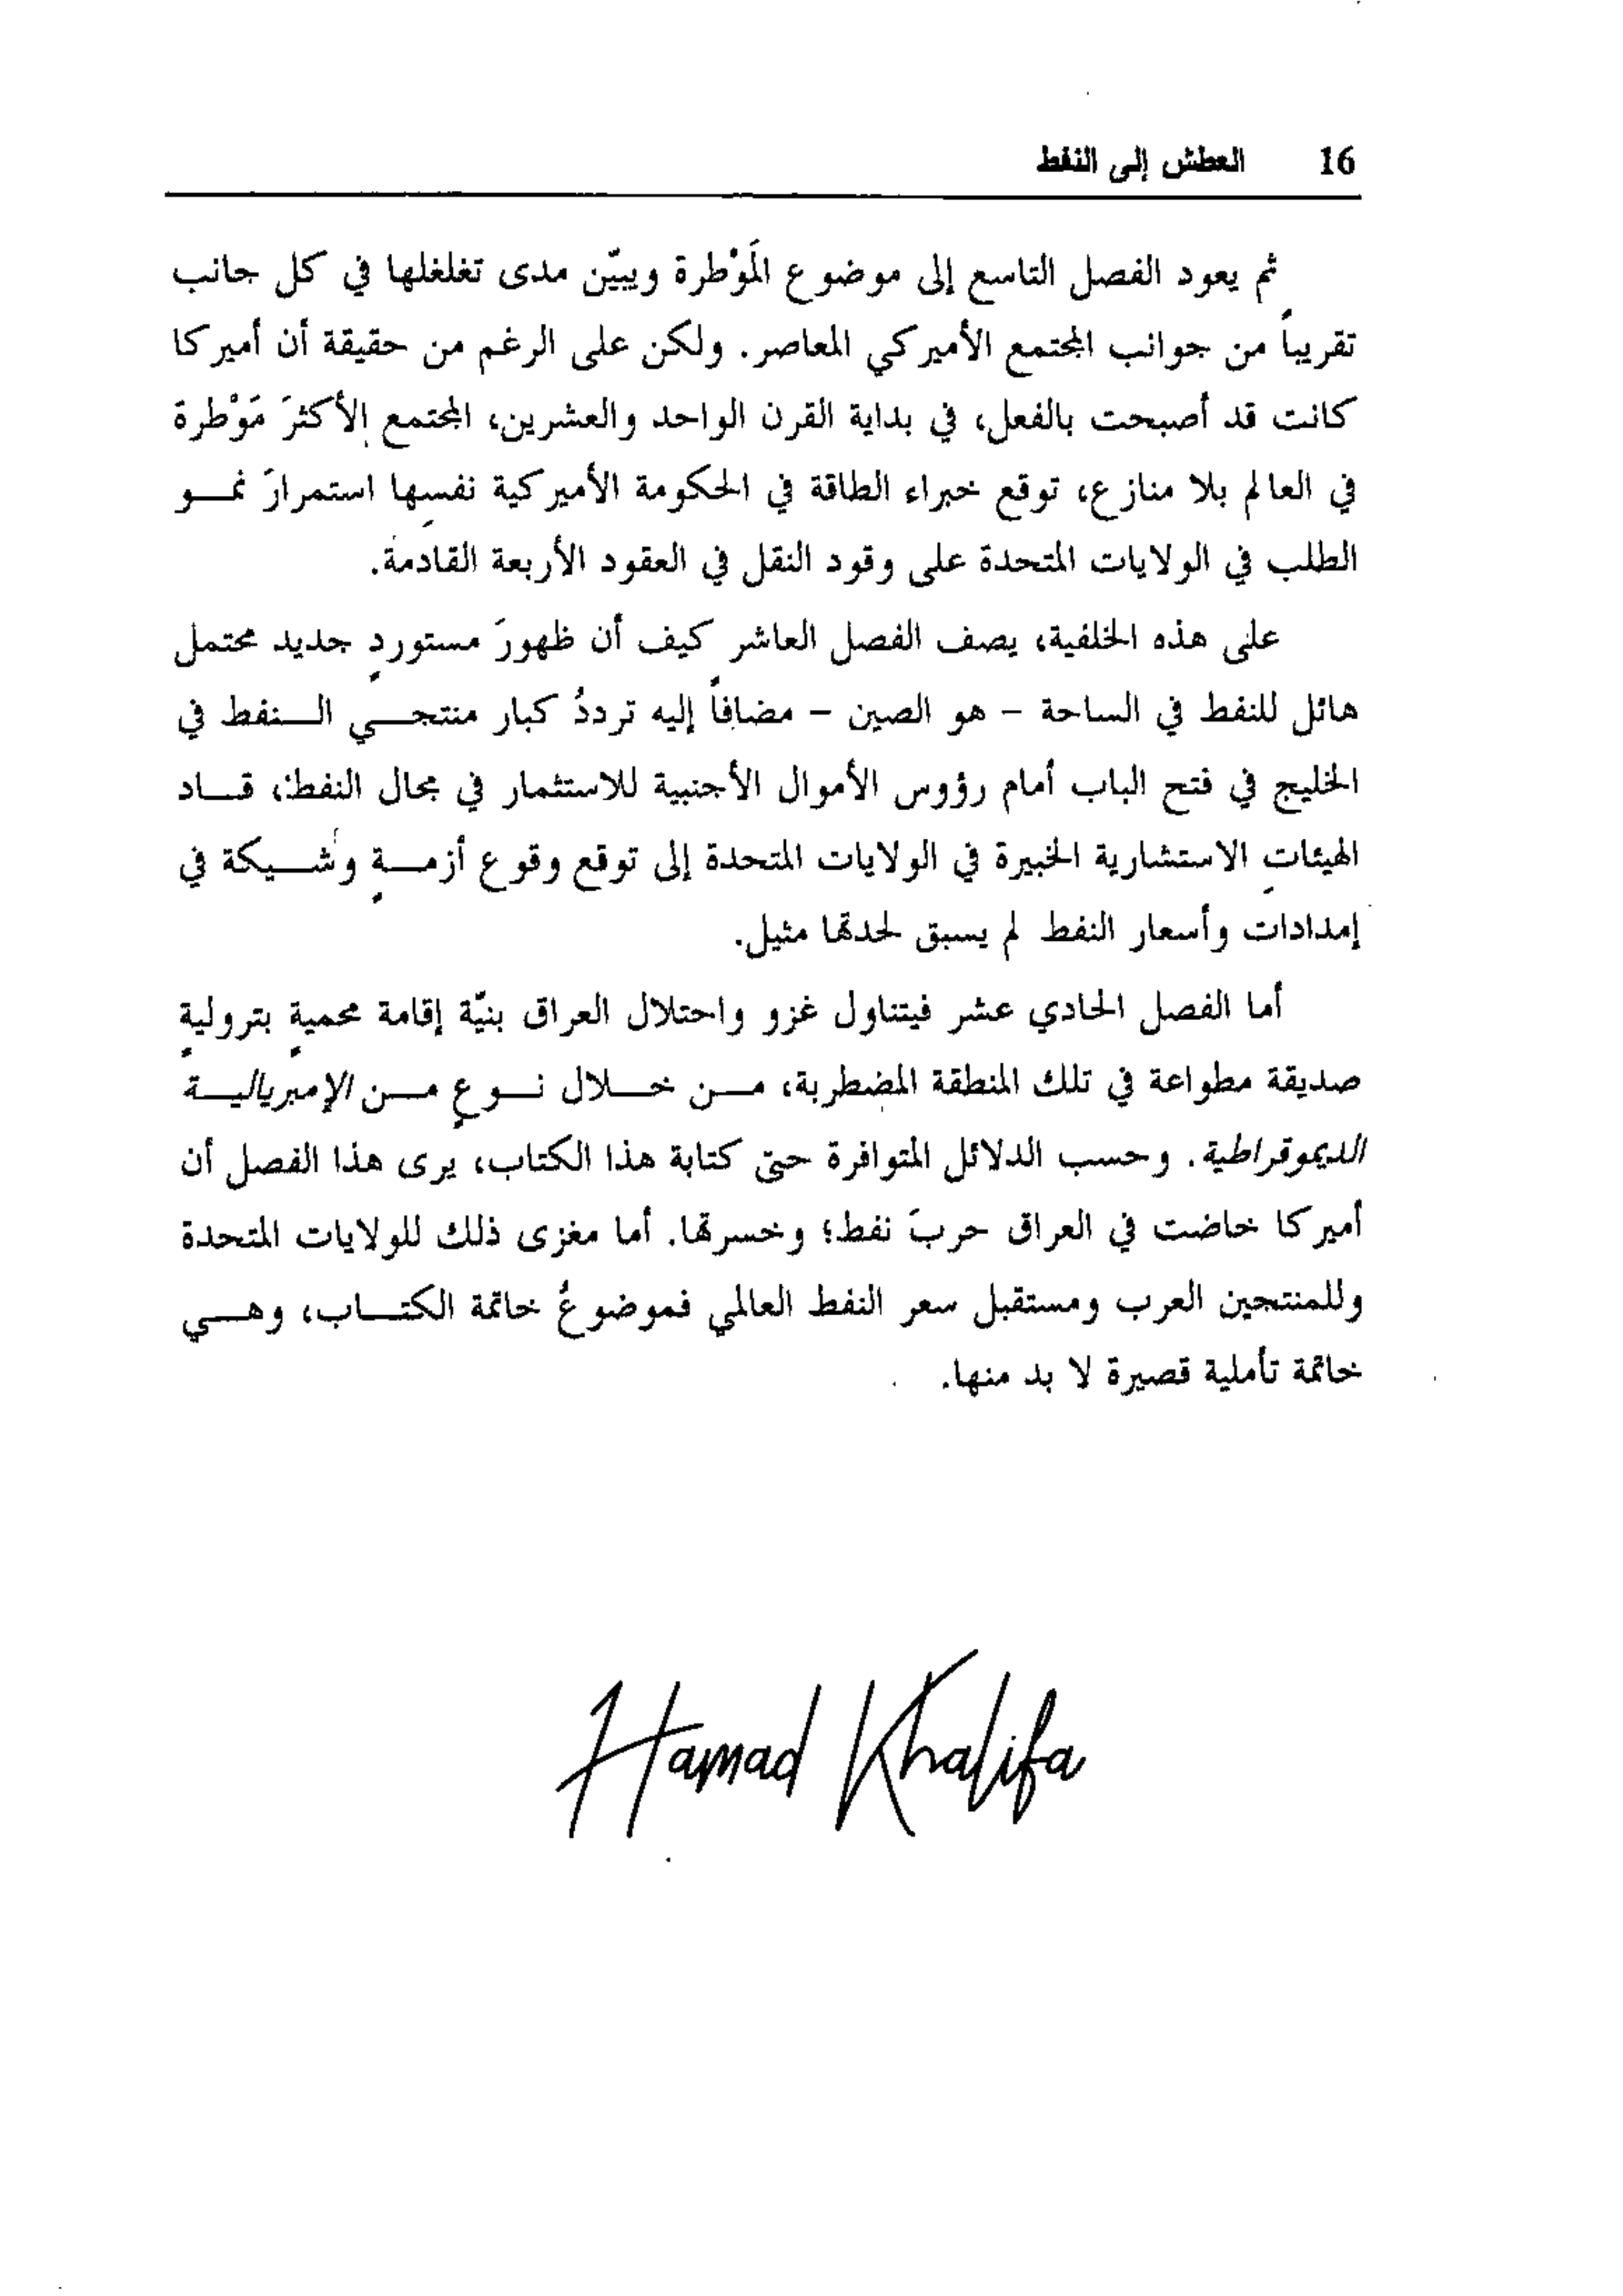 16 العطش إلى النفط
ثم يعود الفصل التاسع إلى موضوع المَوْطرة ويبيّن مدى تغلغلها في كل جانب
تقريباً من جوانب المجتمع الأميركي المعاصر. ولكن على الرغم من حقيقة أن أميركا
كانت قد أصبحت بالفعل، في بداية القرن الواحد والعشرين، المجتمع الأكثرَ مَوْطرة
في العالم بلا منازع، توقع خبراء الطاقة في الحكومة الأميركية نفسِها استمرارَ نمــو
الطلب في الولايات المتحدة على وقود النقل في العقود الأربعة القادمة.
على هذه الخلفية، يصف الفصل العاشر كيف أن ظهورَ مستوردٍ جديد محتمل
هائل للنفط في الساحة – هو الصين – مضافاً إليه ترددُ كبار منتجــي الــنفط في
الخليج في فتح الباب أمام رؤوس الأموال الأجنبية للاستثمار في مجال النفط، قــاد
الهيئاتِ الاستشارية الخبيرة في الولايات المتحدة إلى توقع وقوع أزمــةٍ وشــيكة في
إمدادات وأسعار النفط لم يسبق لحدتها مثيل.
أما الفصل الحادي عشر فيتناول غزو واحتلال العراق بنيّة إقامة محميةٍ بتروليةٍ
صديقة مطواعة في تلك المنطقة المضطربة، مــن خــلال نــوعٍ مــن الإمبرياليــة
الديموقراطية. وحسب الدلائل المتوافرة حتى كتابة هذا الكتاب، يرى هذا الفصل أن
أميركا خاضت في العراق حربَ نفط؛ وخسرتها. أما مغزى ذلك للولايات المتحدة
وللمنتجين العرب ومستقبل سعر النفط العالمي فموضوعُ خاتمة الكتــاب، وهــي
خاتمة تأملية قصيرة لا بد منها.
Hamad Khalifa